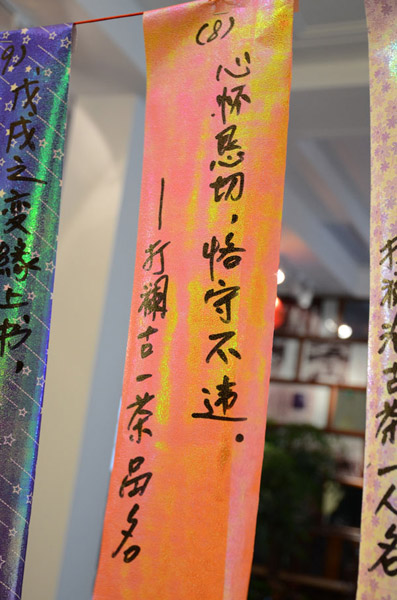 打澜沧古茶一人名
(8)
心怀恳切，恪守不违。
——打澜古一茶品名
9)
戊戌之变緣上书，